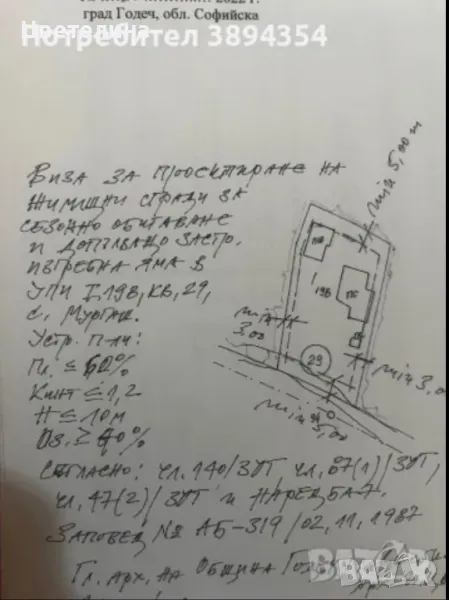 2022 г.
град Годеч, обл. Софийска
Цветелина
Потребител 3894354
ВИЗА ЗА ПРОЕКТИРАНЕ НА
ЖИЛИЩНИ СГРАДИ ЗА
СЕЗОННО ОБИТАВАНЕ
И ДОПЪЛВАЩО ЗАСТР.
ИЗГРЕБНА ЯМА В
УПИ I 19В, КВ, 29,
С. МУРГАШ.
УСТР. П-ЛИ:
ПЛ. ≤ 60%
КИНТ ≤ 1,2
H ≤ 10 М
ОЗ. ≥ 40%
СЪГЛАСНО: ЧЛ. 140/ЗУТ ЧЛ. 67(1)/ЗУТ,
ЧЛ. 47(2)/ЗУТ И НАРЕДБА 7.
ЗАПОВЕД № АБ-319/02,11,1987
ГЛ. АРХ. НА ОБЩИНА
min 5,00 m
I
19В
ПС
min
3.00
29
min 3,00
min
5,00